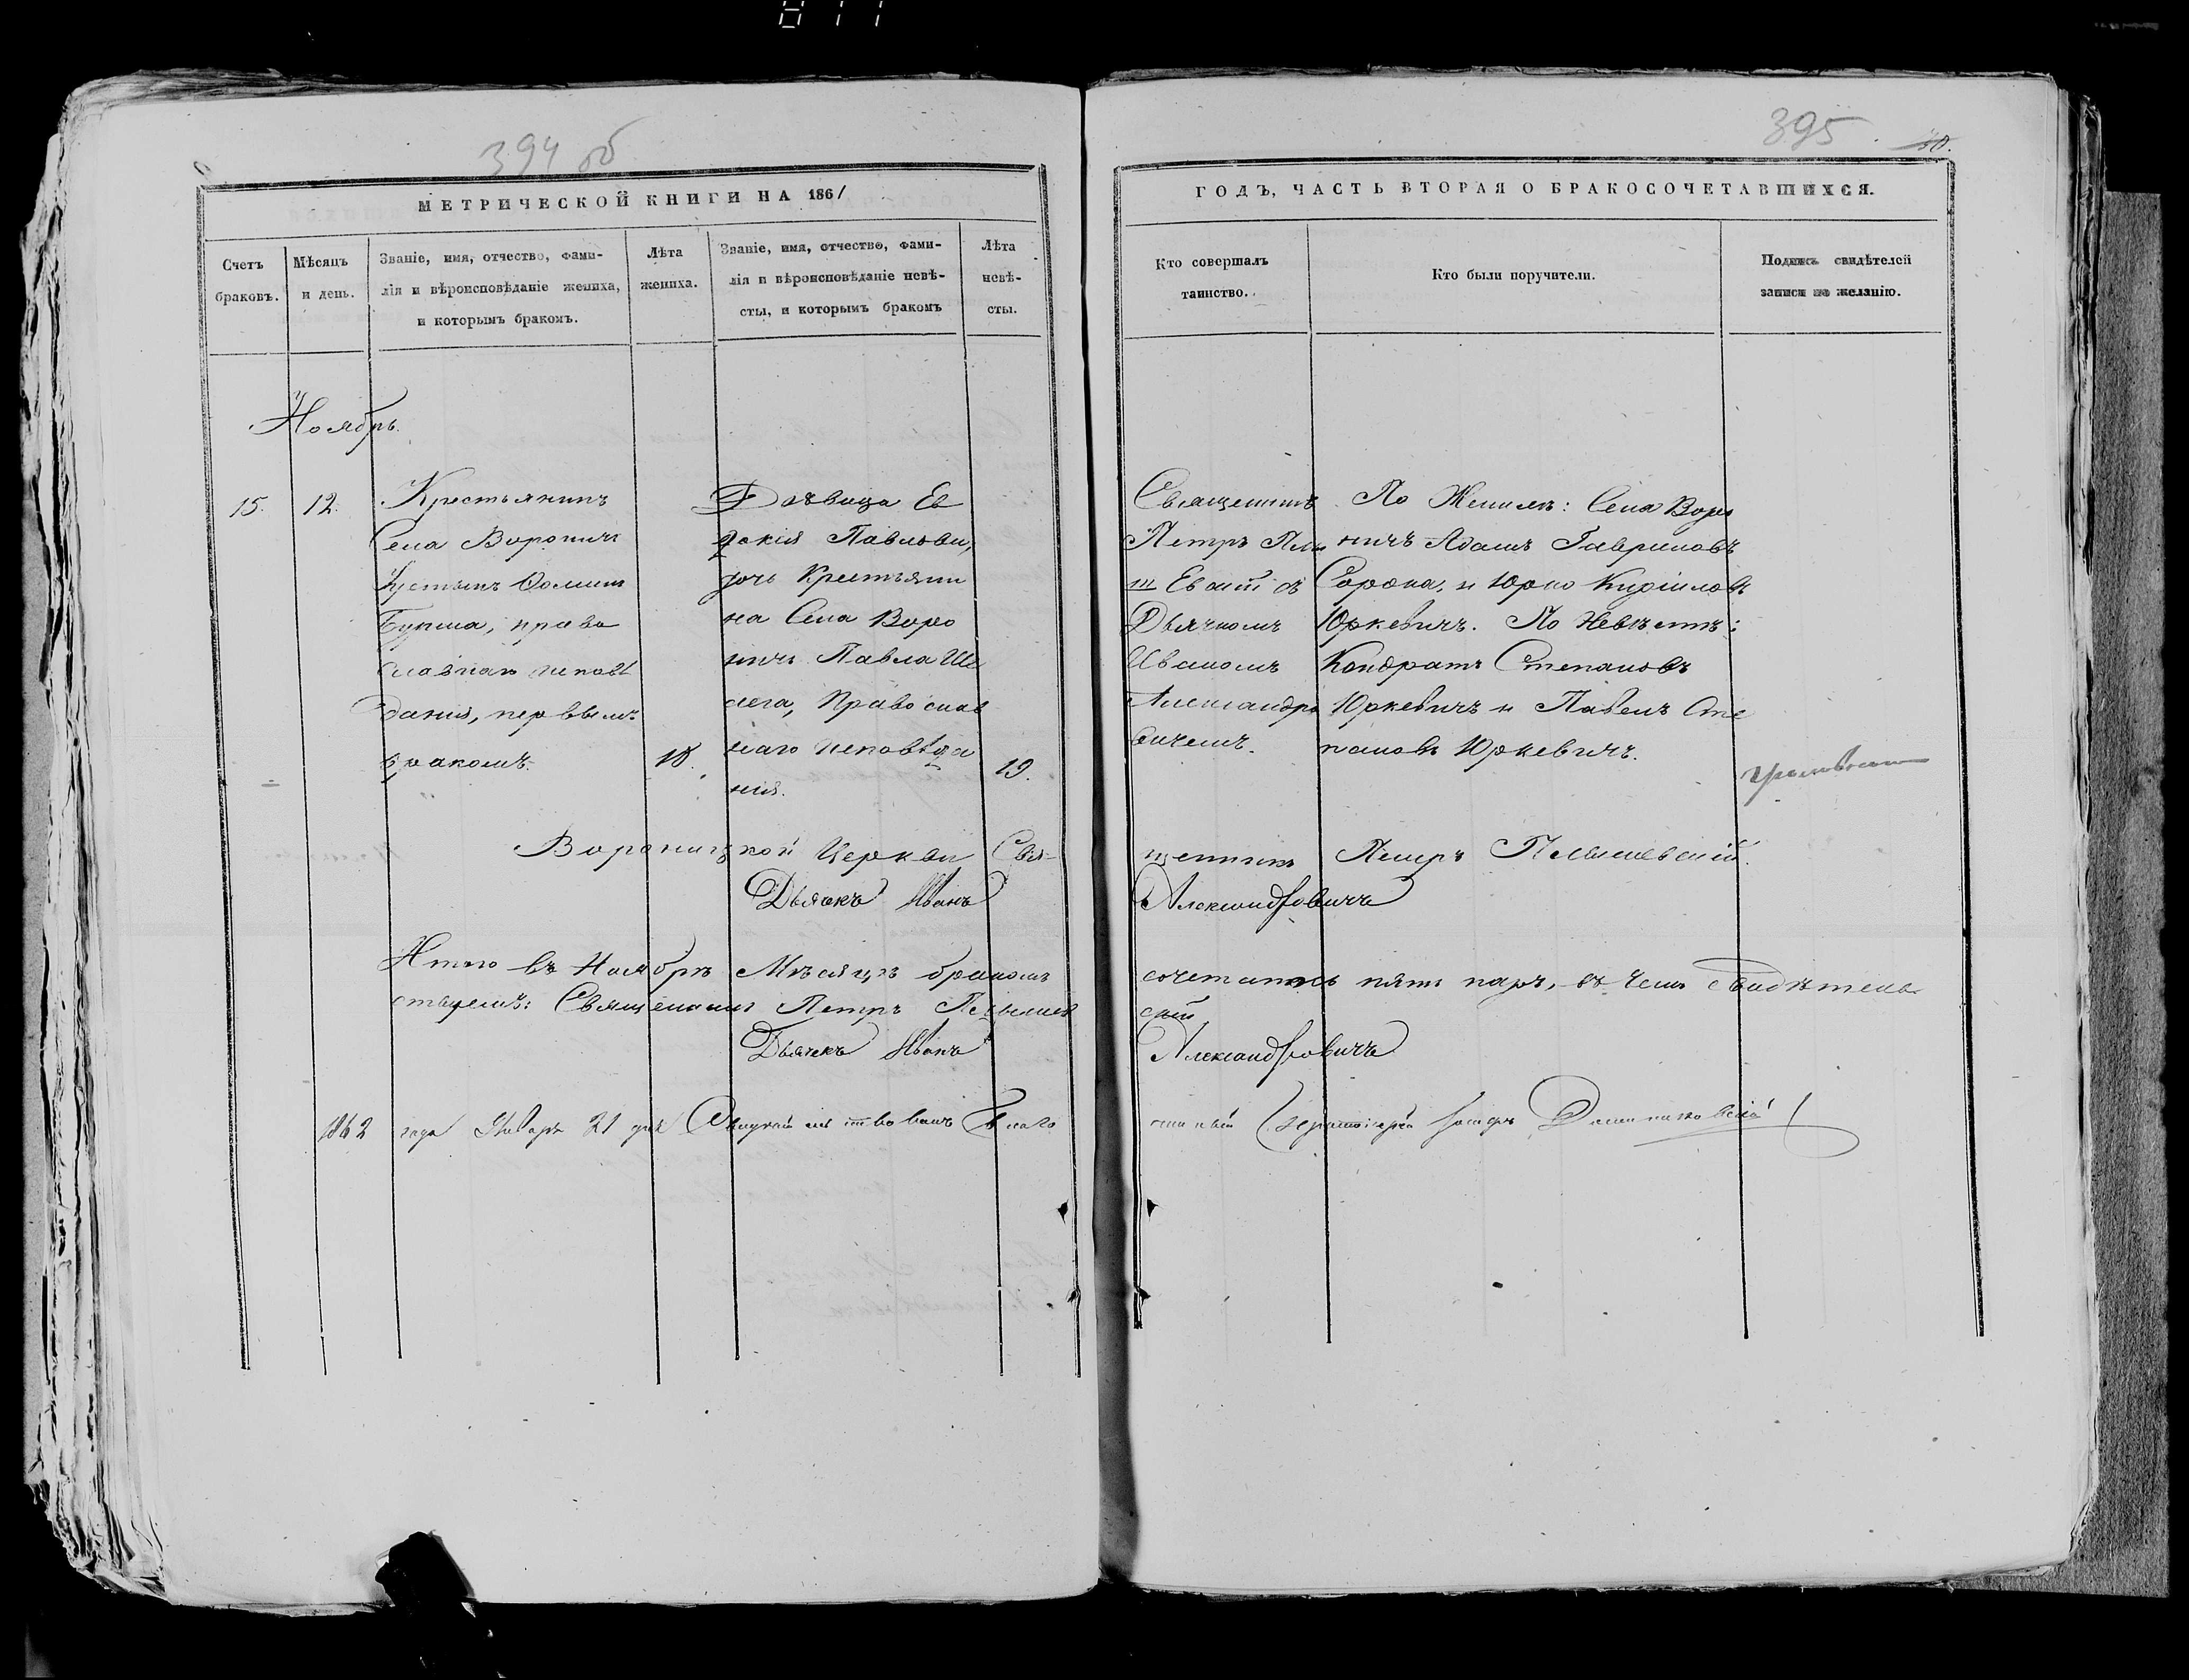 811
394 об
395
МЕТРИЧЕСКОЙ КНИГИ НА 1861
ГОДЪ, ЧАСТЬ ВТОРАЯ О БРАКОСОЧЕТАВШИХСЯ.
Счетъ
браковъ.
Мѣсяцъ
и день.
Званіе, имя, отчество, фами-
лія и вѣроисповѣданіе жениха,
и которымъ бракомъ.
Лѣта
жениха.
Званіе, имя, отчество, фами-
лія и вѣроисповѣданіе невѣ-
сты, и которымъ бракомъ
Лѣта
невѣ-
сты.
Кто совершалъ
таинство.
Кто были поручители.
Подпись свидѣтелей
записи по желанію.
Ноябрь.
15.
12.
Крестьянинъ
Села Вороничь
Ѳомин
православнаго исповѣ
данія, первымъ
бракомъ.
18.
Дѣвица Ев
докія Павлови,
дочь Крестьяни
на Села Воро
ничь Павла Ше
лега, Православ
наго исповѣда
нія.
19.
Священникъ
Петръ
Евскій съ
Дьячкомъ
Иваномъ
Александро
вичемъ.
По Женихѣ: Села Воро
ничь Адамъ Гавриловъ
Сорока, и Юрко Кирилловъ
Юркевичъ. По Невѣстѣ:
Кондратъ Степановъ
Юркевичъ и Павелъ Сте
пановъ Юркевичъ.
Вороницкой Церкви Свя-
щенникъ Петръ
Дьячекъ Иванъ Александровичъ
Итого въ Ноябрѣ Мѣсяцѣ бракомъ
сочеталось пять паръ, въ чемъ свидѣтель
ствуемъ: Священникъ Петръ
скій
Дьячекъ Иванъ Александровичъ
1862 года Января 21 дня Свидѣтельствовалъ Благо
чинный